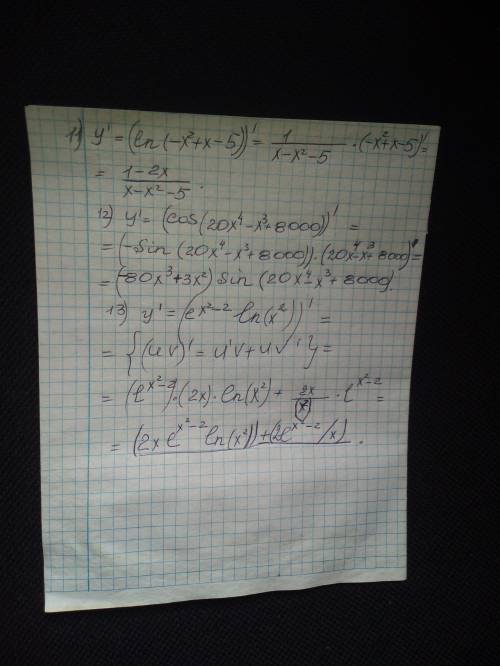 11) y' = (ln(-x²+x-5))' = 1/(x-x²-5) · (-x²+x-5)' =
= (1-2x)/(x-x²-5).
12) y' = (cos(20x⁴-x³+8000))' =
= (-sin(20x⁴-x³+8000))·(20x⁴-x³+8000)' =
= (-80x³+3x²) sin(20x⁴-x³+8000)
13) y' = (e^(x²-2) ln(x²))' =
= {(uv)' = u'v+uv'} =
= (e^(x²-2))·(2x)·ln(x²) + 2x/(x²) · e^(x²-2) =
= (2x e^(x²-2) ln(x²))+(2e^(x²-2)/x).